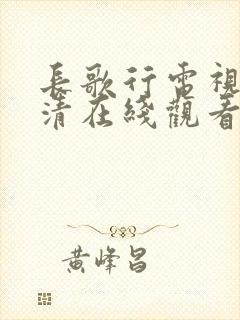 長歌行電視
清在綫觀看
黄峰昌